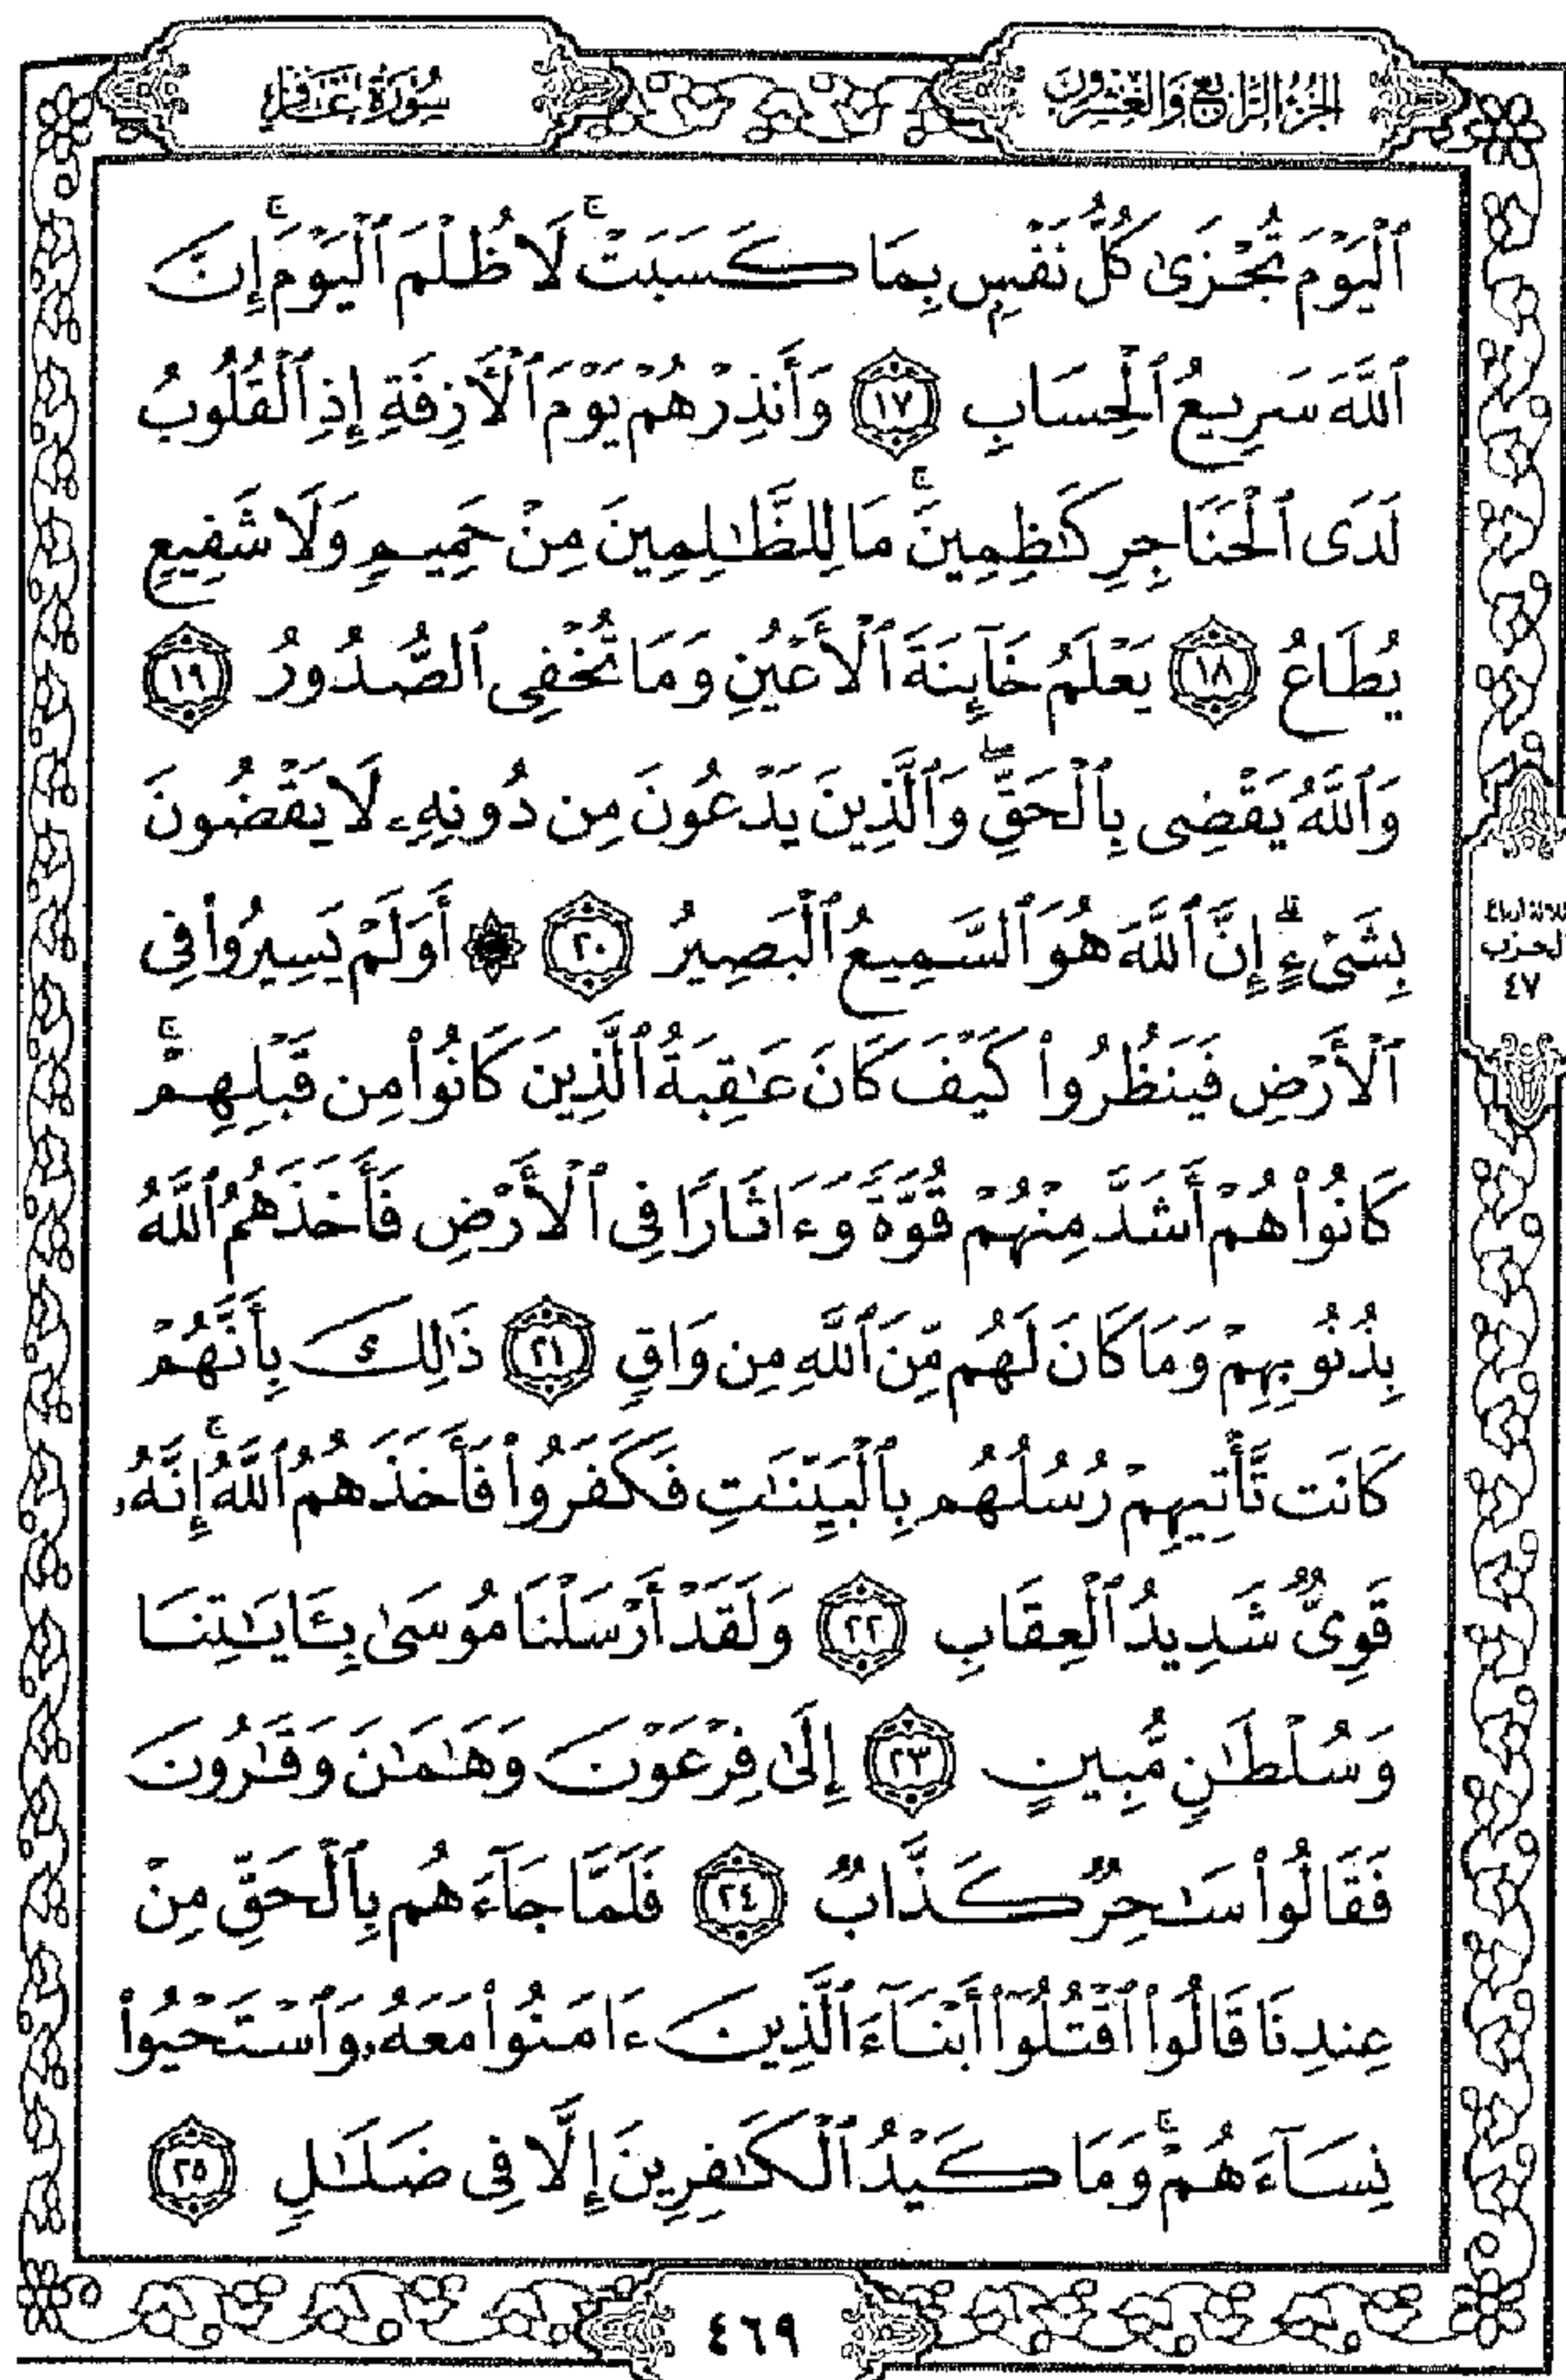 الجزء الرابع والعشرون
سورة غافر
ٱلْيَوْمَ تُجْزَىٰ كُلُّ نَفْسٍۭ بِمَا كَسَبَتْ ۚ لَا ظُلْمَ ٱلْيَوْمَ ۚ إِنَّ
ٱللَّهَ سَرِيعُ ٱلْحِسَابِ ١٧ وَأَنذِرْهُمْ يَوْمَ ٱلْأَزِفَةِ إِذِ ٱلْقُلُوبُ
لَدَى ٱلْحَنَاجِرِ كَٰظِمِينَ ۚ مَا لِلظَّٰلِمِينَ مِنْ حَمِيمٍ وَلَا شَفِيعٍ
يُطَاعُ ١٨ يَعْلَمُ خَآئِنَةَ ٱلْأَعْيُنِ وَمَا تُخْفِى ٱلصُّدُورُ ١٩
وَٱللَّهُ يَقْضِى بِٱلْحَقِّ ۖ وَٱلَّذِينَ يَدْعُونَ مِن دُونِهِۦ لَا يَقْضُونَ
بِشَىْءٍ ۗ إِنَّ ٱللَّهَ هُوَ ٱلسَّمِيعُ ٱلْبَصِيرُ ٢٠ ۞ أَوَلَمْ يَسِيرُوا۟ فِى
ٱلْأَرْضِ فَيَنظُرُوا۟ كَيْفَ كَانَ عَٰقِبَةُ ٱلَّذِينَ كَانُوا۟ مِن قَبْلِهِمْ ۚ
كَانُوا۟ هُمْ أَشَدَّ مِنْهُمْ قُوَّةً وَءَاثَارًا فِى ٱلْأَرْضِ فَأَخَذَهُمُ ٱللَّهُ
بِذُنُوبِهِمْ وَمَا كَانَ لَهُم مِّنَ ٱللَّهِ مِن وَاقٍ ٢١ ذَٰلِكَ بِأَنَّهُمْ
كَانَت تَّأْتِيهِمْ رُسُلُهُم بِٱلْبَيِّنَٰتِ فَكَفَرُوا۟ فَأَخَذَهُمُ ٱللَّهُ ۚ إِنَّهُۥ
قَوِىٌّ شَدِيدُ ٱلْعِقَابِ ٢٢ وَلَقَدْ أَرْسَلْنَا مُوسَىٰ بِـَٔايَٰتِنَا
وَسُلْطَٰنٍ مُّبِينٍ ٢٣ إِلَىٰ فِرْعَوْنَ وَهَٰمَٰنَ وَقَٰرُونَ
فَقَالُوا۟ سَٰحِرٌ كَذَّابٌ ٢٤ فَلَمَّا جَآءَهُم بِٱلْحَقِّ مِنْ
عِندِنَا قَالُوا۟ ٱقْتُلُوٓا۟ أَبْنَآءَ ٱلَّذِينَ ءَامَنُوا۟ مَعَهُۥ وَٱسْتَحْيُوا۟
نِسَآءَهُمْ ۚ وَمَا كَيْدُ ٱلْكَٰفِرِينَ إِلَّا فِى ضَلَٰلٍ ٢٥
الحزب
٤٧
٤٦٩